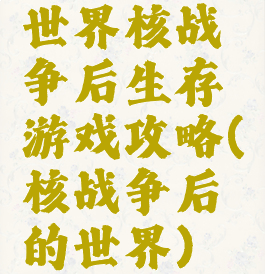 世界核战
争后生存
游戏攻略(
核战争后
的世界)